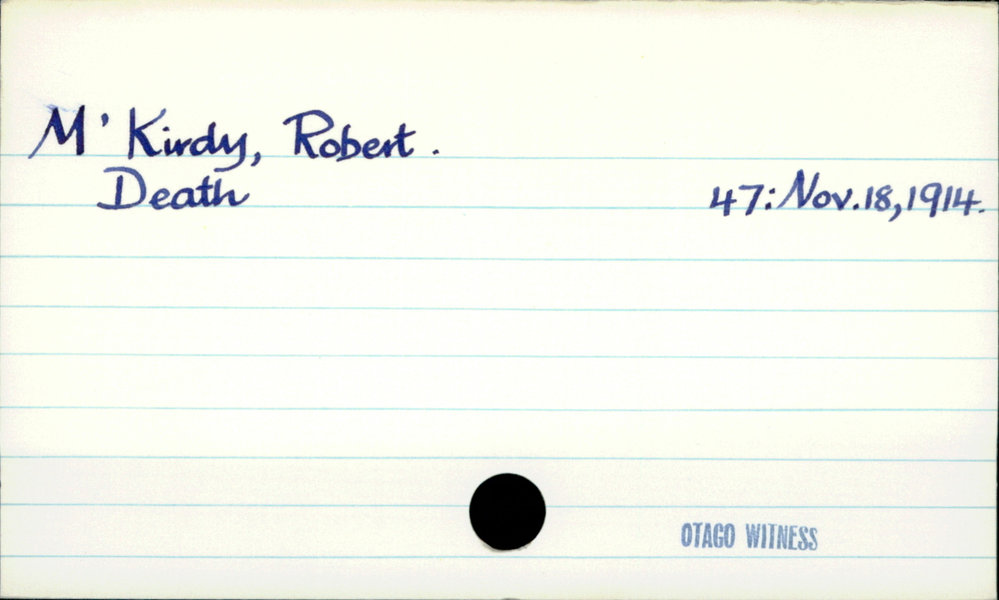 M' Kirdy, Robert.
Death 47: Nov. 18, 1914.
OTAGO WITNESS